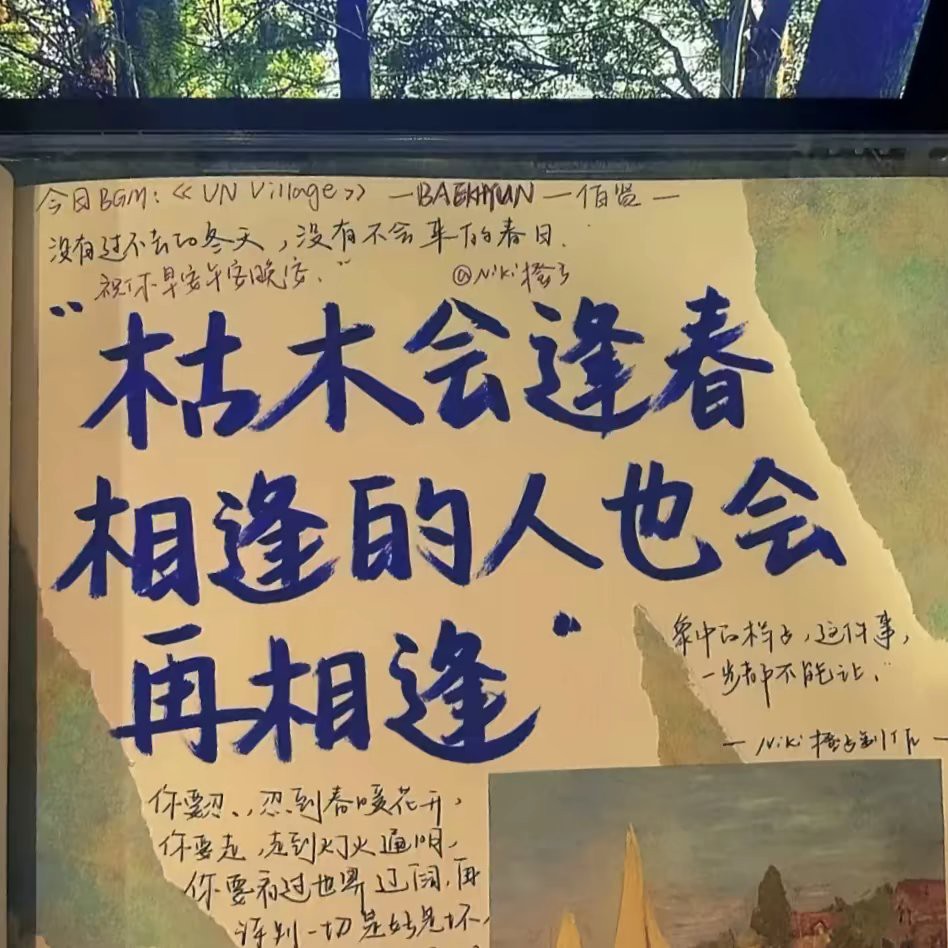 今日BGM:《UN Village》—BAEKHYUN—伯贤—
没有过不去的冬天,没有不会来的春日.
祝你早安午安晚安."
@Niki橙子
"枯木会逢春
相逢的人也会
再相逢"
象中的样子,这件事,
一步都不能让."
—Niki橙子制作—
你要忍、忍到春暖花开,
你要走,走到灯火通明,
你要看过世界辽阔,再
评判一切是好是坏,